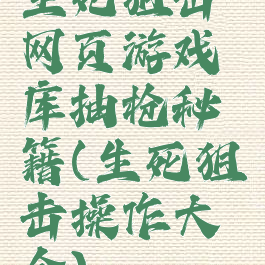 生死狙击
网页游戏
库抽枪秘
籍(生死狙
击操作大
全)